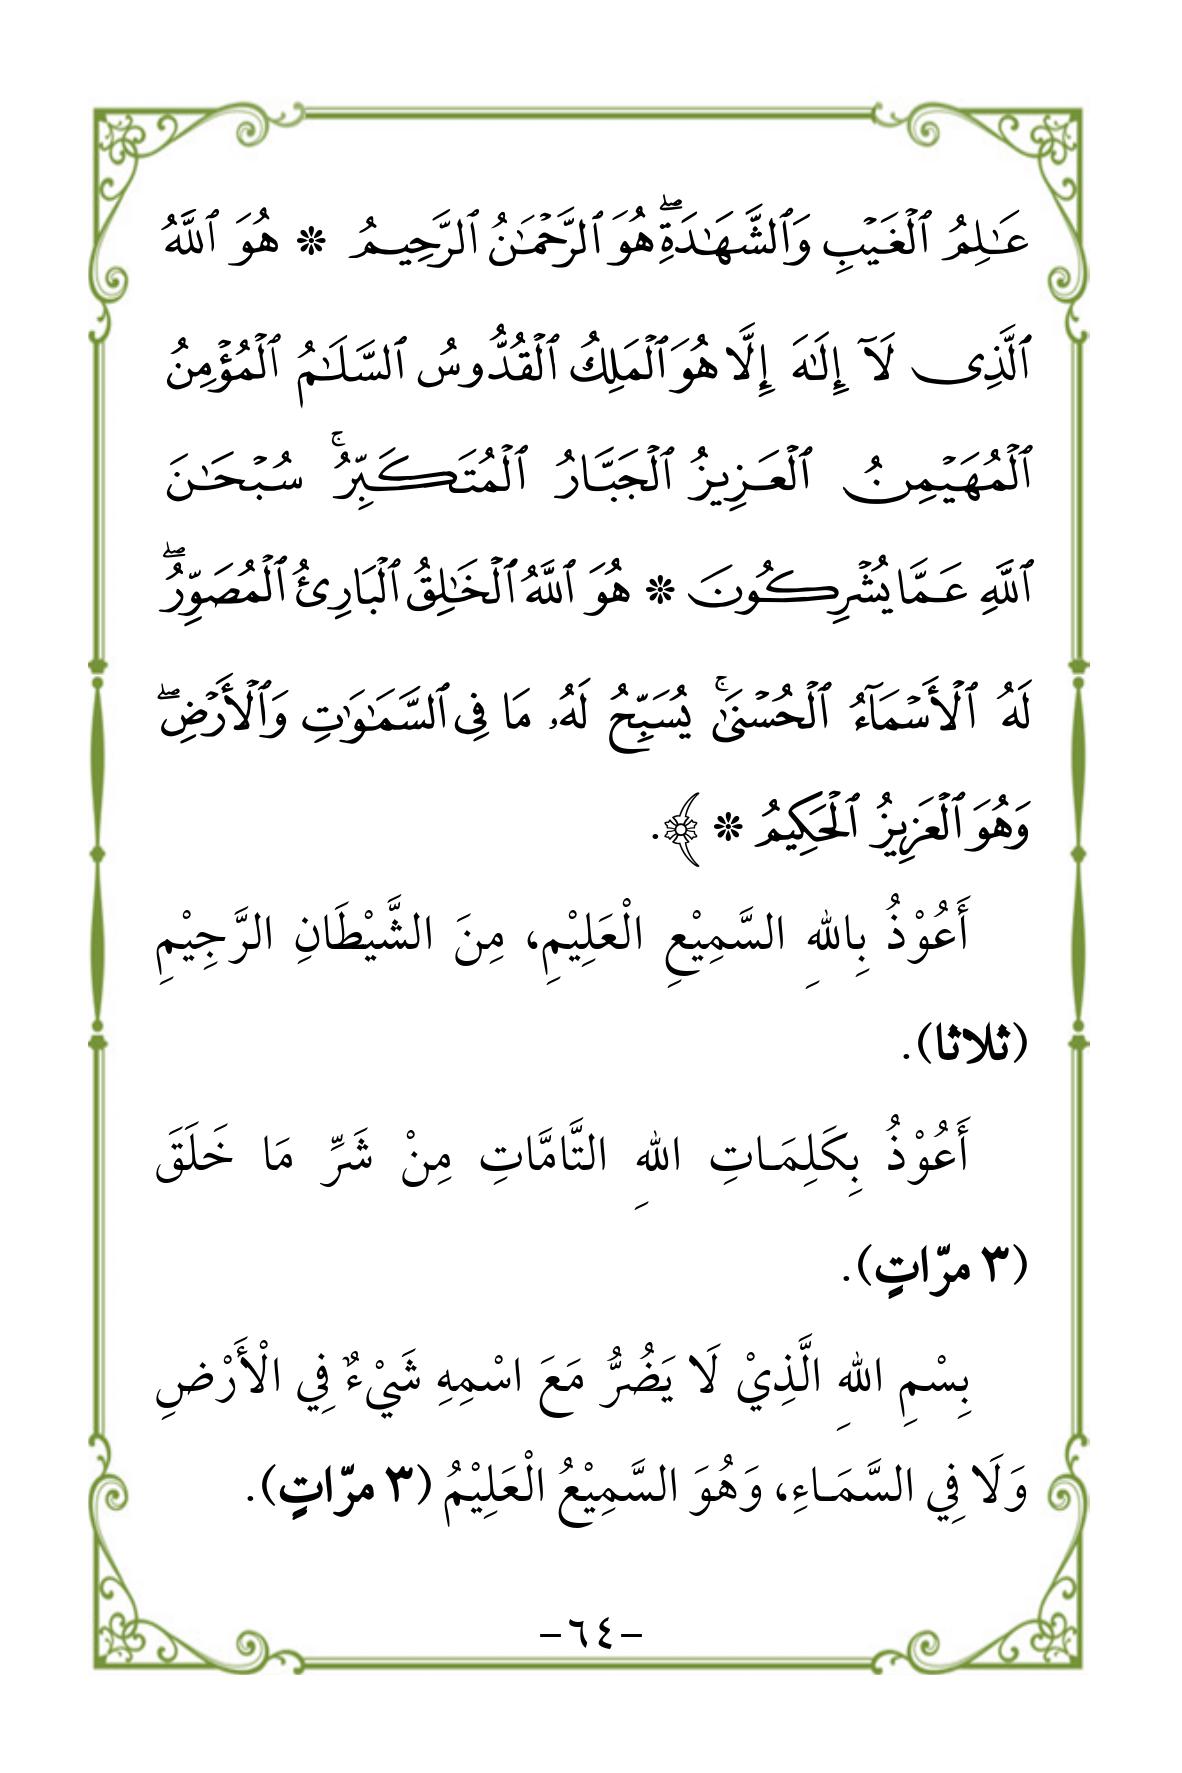 عَٰلِمُ ٱلْغَيْبِ وَٱلشَّهَٰدَةِۖ هُوَ ٱلرَّحْمَٰنُ ٱلرَّحِيمُ ❊ هُوَ ٱللَّهُ
ٱلَّذِى لَآ إِلَٰهَ إِلَّا هُوَ ٱلْمَلِكُ ٱلْقُدُّوسُ ٱلسَّلَٰمُ ٱلْمُؤْمِنُ
ٱلْمُهَيْمِنُ ٱلْعَزِيزُ ٱلْجَبَّارُ ٱلْمُتَكَبِّرُۚ سُبْحَٰنَ
ٱللَّهِ عَمَّا يُشْرِكُونَ ❊ هُوَ ٱللَّهُ ٱلْخَٰلِقُ ٱلْبَارِئُ ٱلْمُصَوِّرُۖ
لَهُ ٱلْأَسْمَآءُ ٱلْحُسْنَىٰۚ يُسَبِّحُ لَهُۥ مَا فِى ٱلسَّمَٰوَٰتِ وَٱلْأَرْضِۖ
وَهُوَ ٱلْعَزِيزُ ٱلْحَكِيمُ ❊ ﴾.
أَعُوْذُ بِاللهِ السَّمِيْعِ الْعَلِيْمِ، مِنَ الشَّيْطَانِ الرَّجِيْمِ
(ثلاثا).
أَعُوْذُ بِكَلِمَاتِ اللهِ التَّامَّاتِ مِنْ شَرِّ مَا خَلَقَ
(٣ مرّاتٍ).
بِسْمِ اللهِ الَّذِيْ لَا يَضُرُّ مَعَ اسْمِهِ شَيْءٌ فِي الْأَرْضِ
وَلَا فِي السَّمَاءِ، وَهُوَ السَّمِيْعُ الْعَلِيْمُ (٣ مرّاتٍ).
–٦٤–